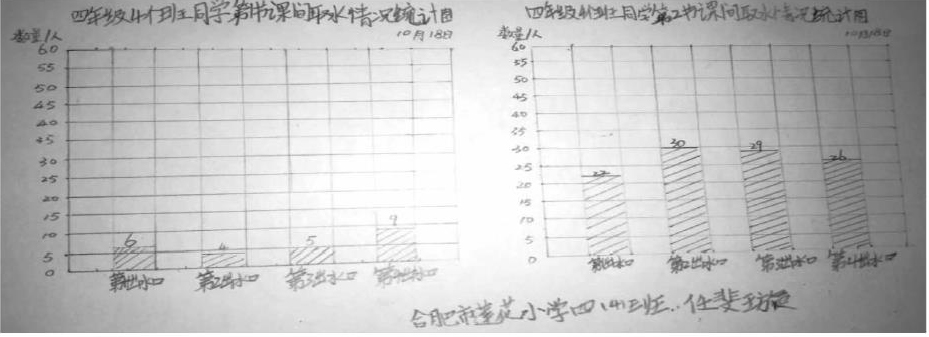 四年级4个班同学第1节课间取水情况统计图
10月18日
数量/人
60
55
50
45
40
35
30
25
20
15
10
5
0
6
4
5
9
第1出水口 第2出水口 第3出水口 第4出水口
四年级4个班同学第2节课间取水情况统计图
10月18日
数量/人
60
55
50
45
40
35
30
25
20
15
10
5
0
22
30
29
26
第1出水口 第2出水口 第3出水口 第4出水口
合肥市莲花小学四(4)班 任斐